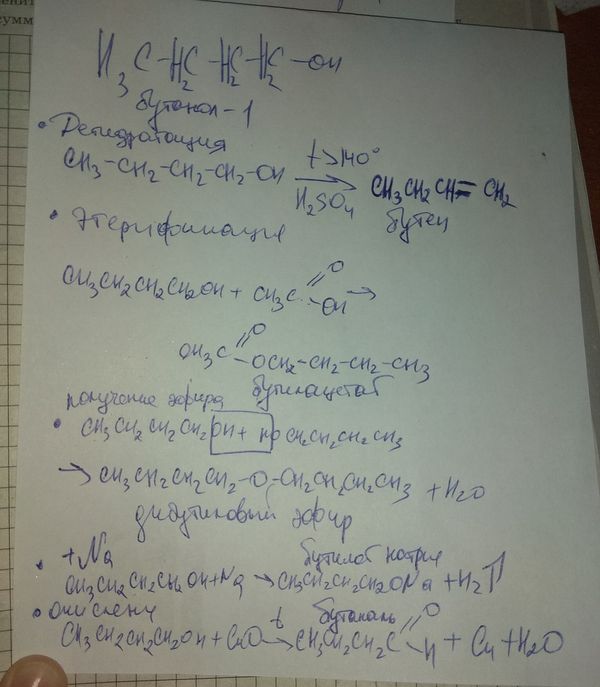 H₃C-H₂C-H₂C-H₂C-OH
бутанол-1
• Дегидратация
CH₃-CH₂-CH₂-CH₂-OH t>140° H₂SO₄ → CH₃CH₂CH=CH₂
бутен
• Этерификация
CH₃CH₂CH₂CH₂OH + CH₃C O OH →
CH₃C O OCH₂-CH₂-CH₂-CH₃
бутилацетат
получение эфира
• CH₃CH₂CH₂CH₂OH + HOCH₂CH₂CH₂CH₃
→ CH₃CH₂CH₂CH₂-O-CH₂CH₂CH₂CH₃ + H₂O
дибутиловый эфир
• +Na бутилат натрия
CH₃CH₂CH₂CH₂OH+Na → CH₃CH₂CH₂CH₂ONa + H₂↑
• окислени бутаналь
CH₃CH₂CH₂CH₂OH + CuO t → CH₃CH₂CH₂C O H + Cu + H₂O